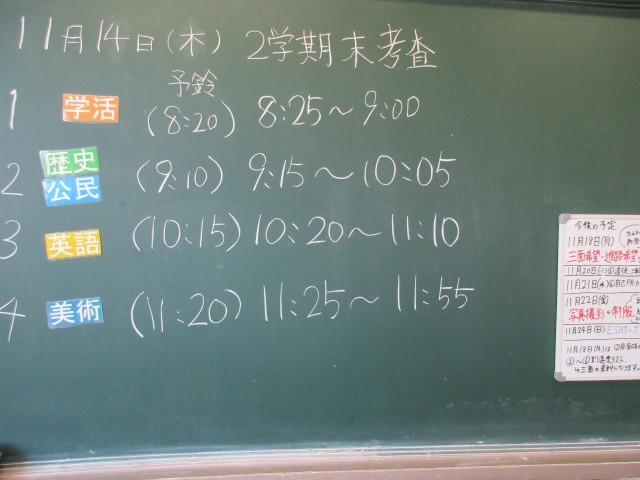 11月14日(木) 2学期末考査
予鈴
1 学活 (8:20) 8:25～9:00
2 歴史 公民 (9:10) 9:15～10:05
3 英語 (10:15) 10:20～11:10
4 美術 (11:20) 11:25～11:55
今後の予定
11月18日(月)
三面希望・進路希望
11月20日
11月21日(木)
11月22日(金)
写真撮影 制服
11月24日(日)
11月18日(月)は